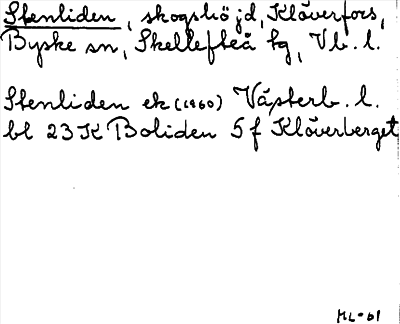 Stenliden, skogshöjd, Klöverfors,
Byske sn, Skellefteå tg, Vb. l.
Stenliden ek (1960) Västerb. l.
bl 23 K Boliden 5 f Klöverberget
ML-61